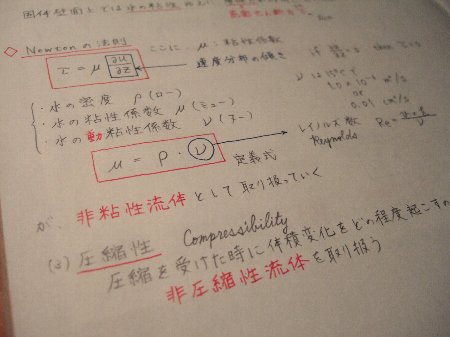 固体壁面上では水の粘性
◇ Newtonの法則 ここに、μ:粘性係数
τ = μ ∂u/∂z 速度分布の傾き
if ∂u/∂z = 0, then τ = 0
・水の密度 ρ(ロー)
・水の粘性係数 μ(ミュー)
・水の動粘性係数 ν(ヌー)
ν は 15℃で
1.0 × 10⁻⁶ m²/s
or
0.01 cm²/s
μ = ρ・ν 定義式
レイノルズ数 Re =
Reynolds
が、非粘性流体として取り扱っていく
(2) 圧縮性 Compressibility
圧縮を受けた時に体積変化をどの程度起こすの
非圧縮性流体を取り扱う